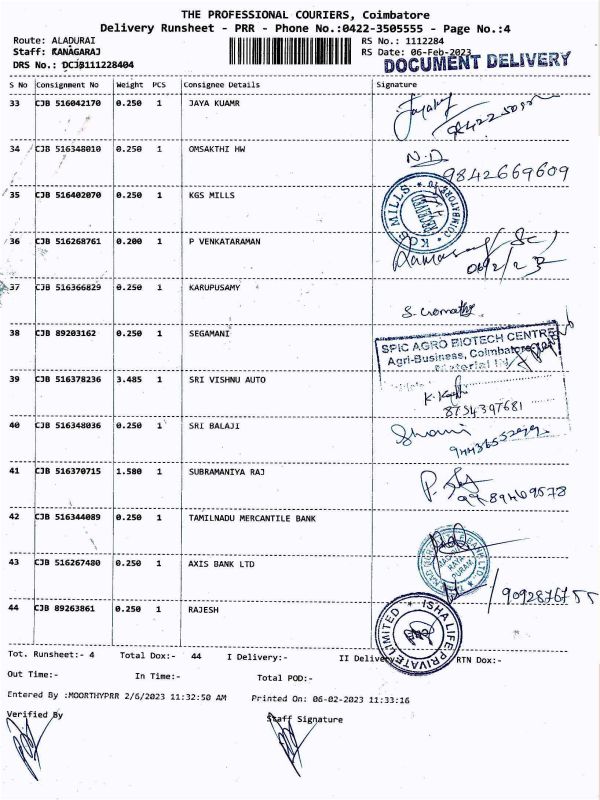 THE PROFESSIONAL COURIERS, Coimbatore
Delivery Runsheet - PRR - Phone No.:0422-3505555 - Page No.:4
Route: ALADURAI RS No.: 1112284
Staff: KANAGARAJ RS Date: 06-Feb-2023
DRS No.: DCJB111228404 DOCUMENT DELIVERY
S No Consignment No Weight PCS Consignee Details Signature
33 CJB 516042170 0.250 1 JAYA KUAMR
34 CJB 516348010 0.250 1 OMSAKTHI HW N.D
9842669609
35 CJB 516402070 0.250 1 KGS MILLS
MILLS COIMBATORE RECEIVED
36 CJB 516268761 0.200 1 P VENKATARAMAN
06/2/23
37 CJB 516366829 0.250 1 KARUPUSAMY
38 CJB 89203162 0.250 1 SEGAMANI
SPIC AGRO BIOTECH CENTRE
Agri-Business, Coimbatore
Material IN
39 CJB 516378236 3.485 1 SRI VISHNU AUTO
8754397681
40 CJB 516348036 0.250 1 SRI BALAJI
41 CJB 516370715 1.580 1 SUBRAMANIYA RAJ
9789469578
42 CJB 516344089 0.250 1 TAMILNADU MERCANTILE BANK
43 CJB 516267480 0.250 1 AXIS BANK LTD
BANK LTD.
PURAM
9092876755
44 CJB 89263861 0.250 1 RAJESH
ISHA LIFE PRIVATE LIMITED
Tot. Runsheet:- 4 Total Dox:- 44 I Delivery:- II Delivery:- RTN Dox:-
Out Time:- In Time:- Total POD:-
Entered By :MOORTHYPRR 2/6/2023 11:32:50 AM Printed On: 06-02-2023 11:33:16
Verified By Staff Signature